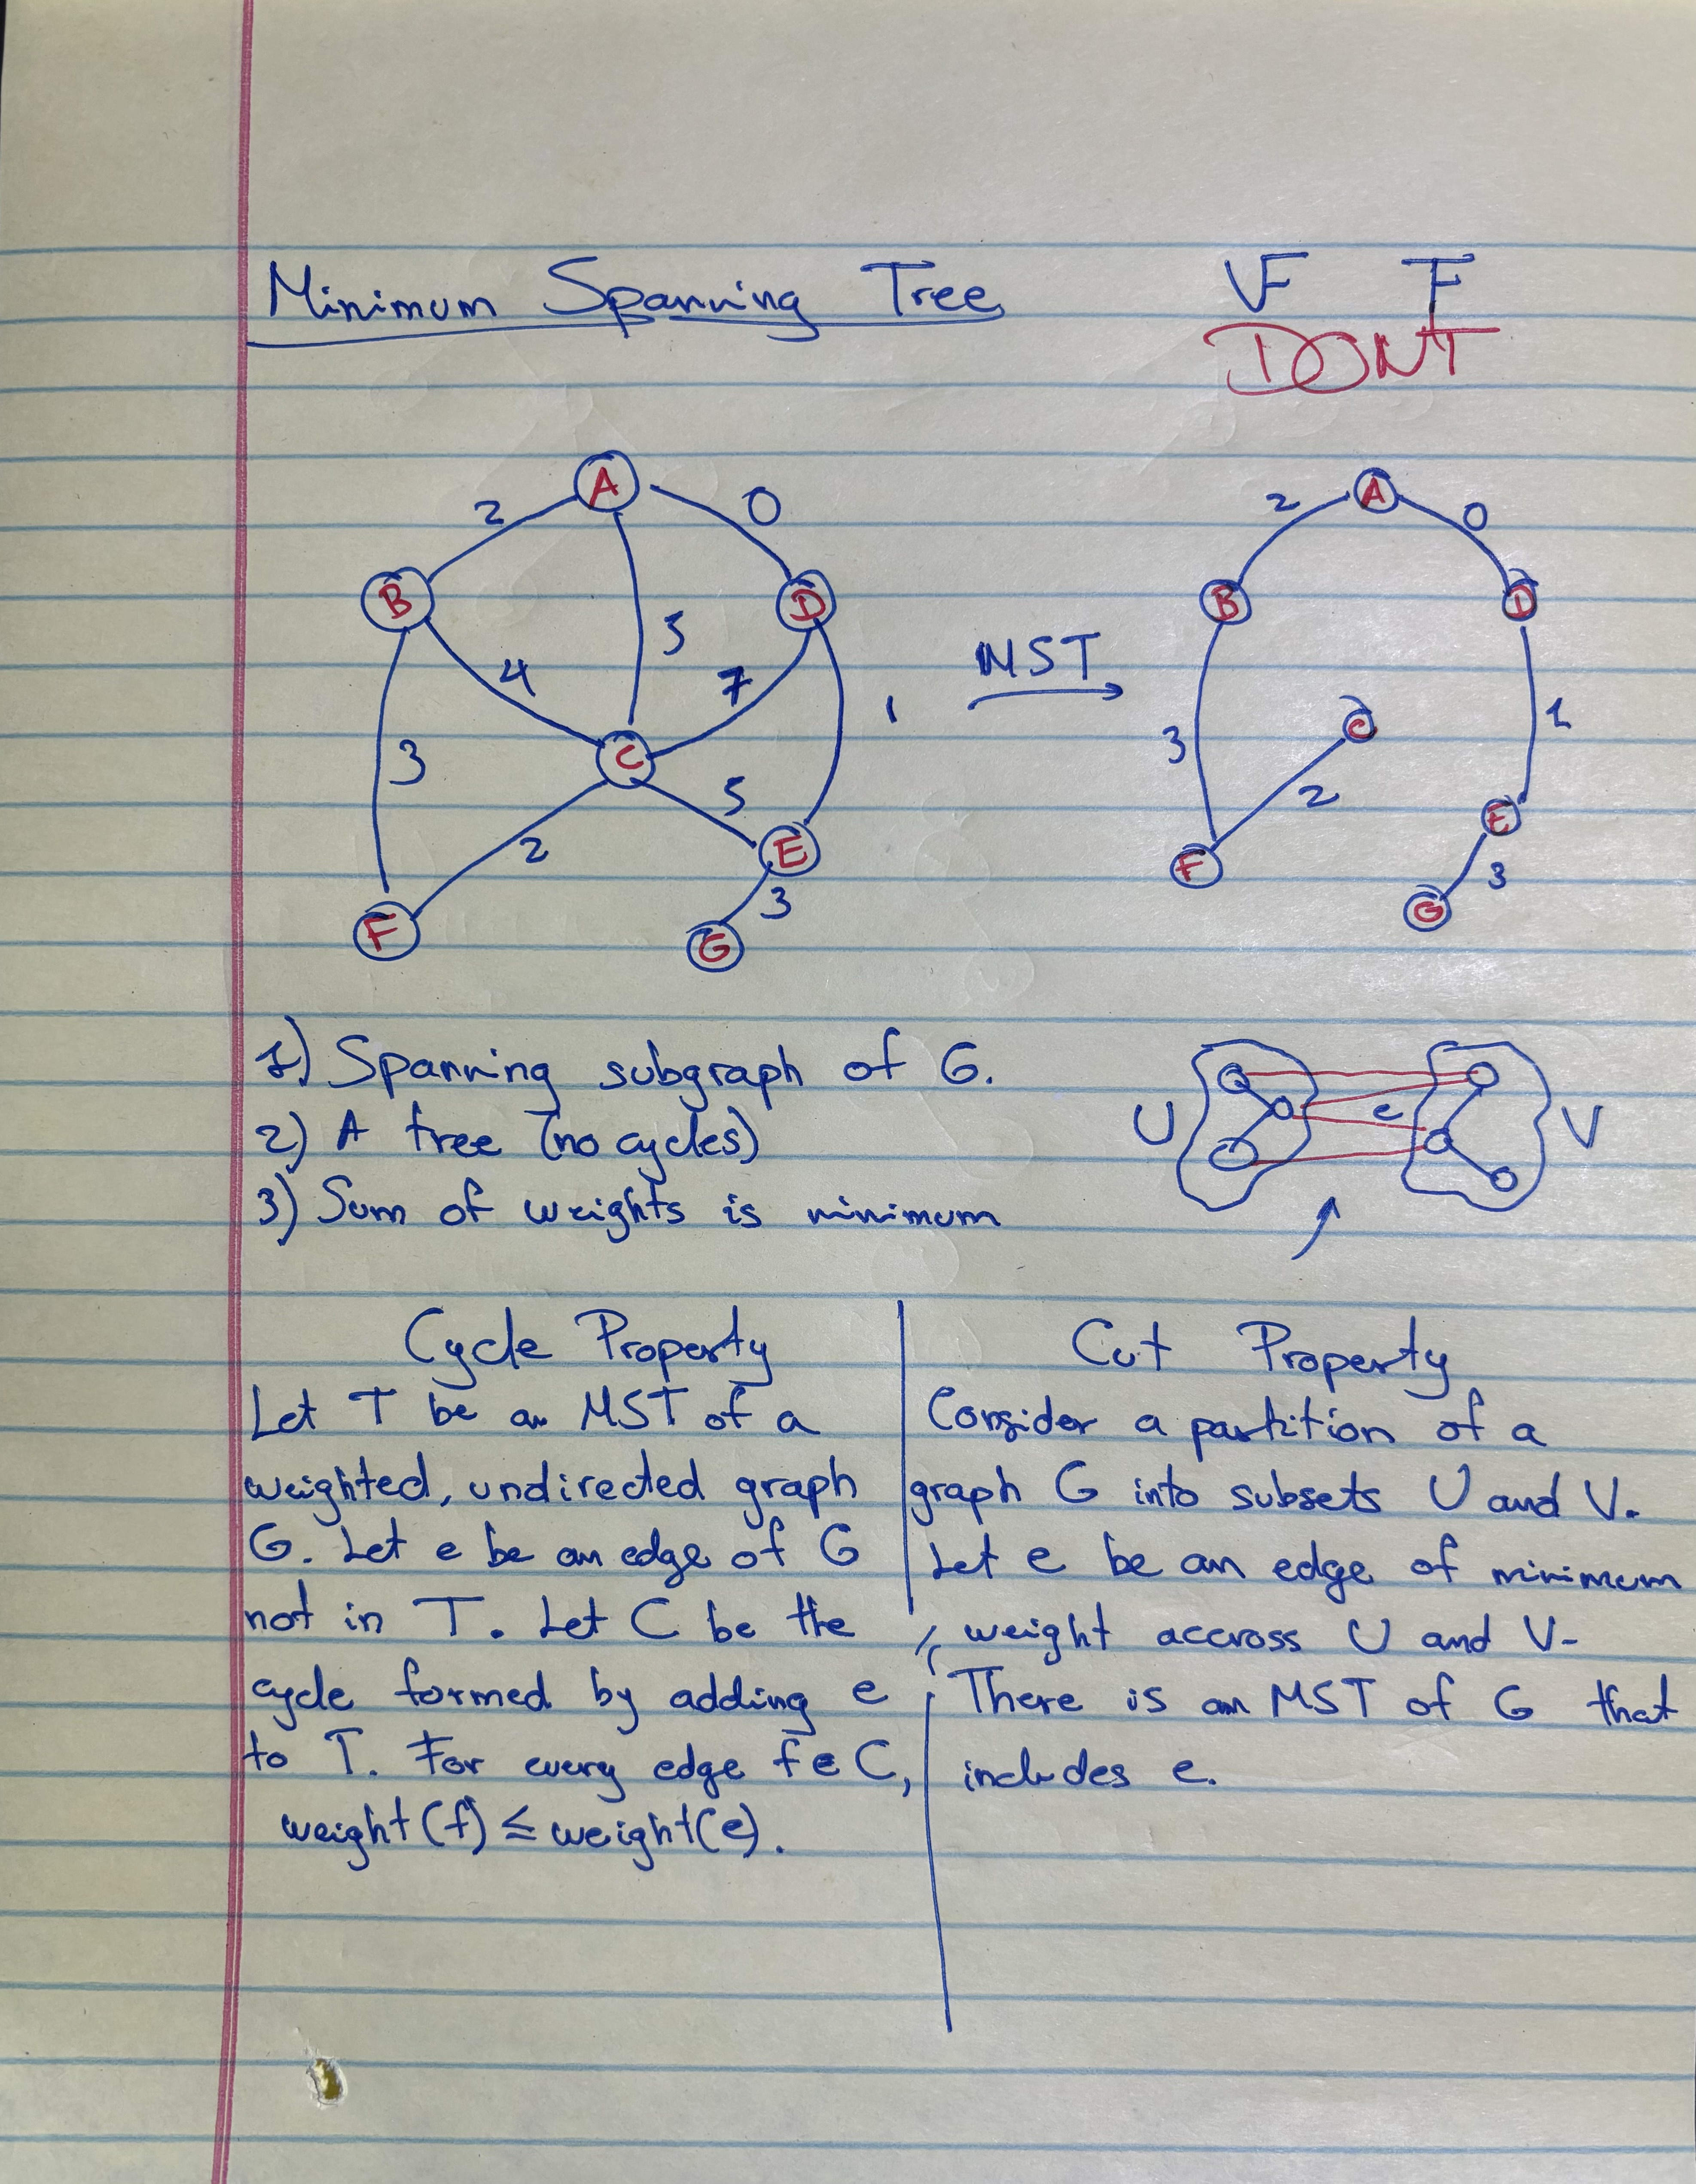 Minimum Spanning Tree VF F
DONT
A
2 0
B D
5
4 7
1
3 C
5
2 E
3
F G
MST
A
2 0
B D
3 C 1
2 E
F 3
G
1) Spanning subgraph of G.
2) A tree (no cycles)
3) Sum of weights is minimum
U e V
Cycle Property
Let T be an MST of a
weighted, undirected graph
G. Let e be an edge of G
not in T. Let C be the
cycle formed by adding e
to T. For every edge f e C,
weight(f) ≤ weight(e).
Cut Property
Consider a partition of a
graph G into subsets U and V.
Let e be an edge of minimum
weight accross U and V.
There is an MST of G that
includes e.